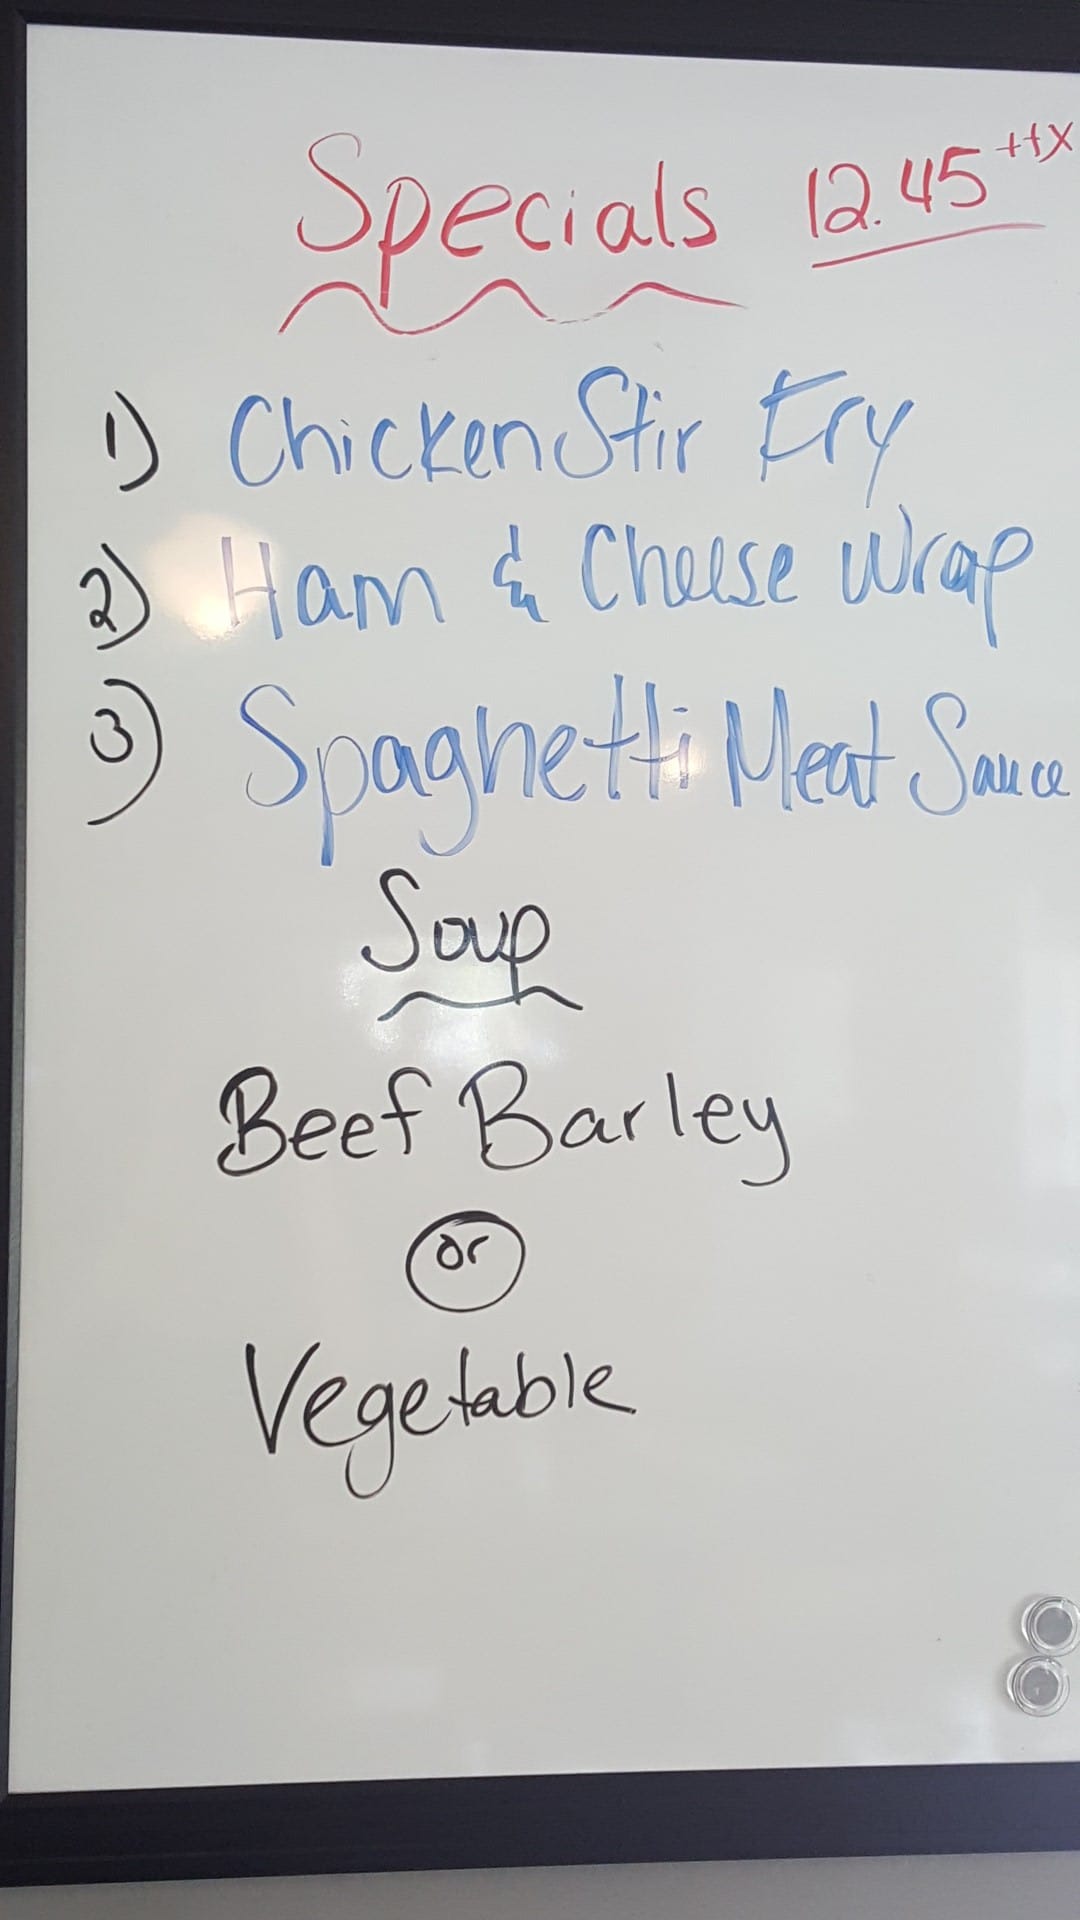 Specials 12.45 +tx
1) Chicken Stir Fry
2) Ham & Cheese Wrap
3) Spaghetti Meat Sauce
Soup
Beef Barley
or
Vegetable